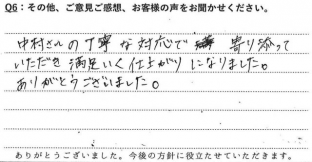 Q6：その他、ご意見ご感想、お客様の声をお聞かせください。
中村さんの丁寧な対応で 寄り添って
いただき 満足いく仕上がりになりました。
ありがとうございました。
ありがとうございました。今後の方針に役立たせていただきます。